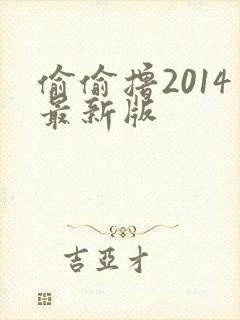 偷偷撸2014
最新版
吉亞才